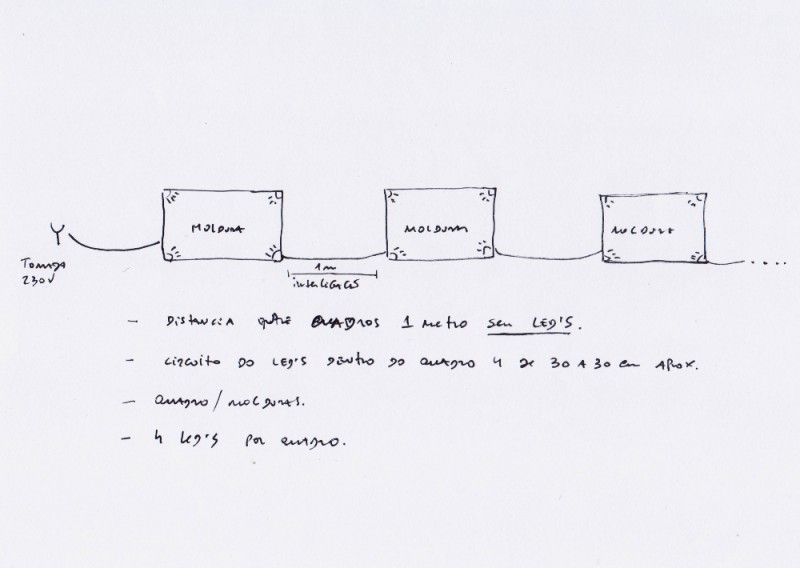 MOLDURA
MOLDURA
MOLDURA
Tomada
230V
1m
....
- DISTANCIA ENTRE QUADROS 1 METRO SEM LED'S.
- CIRCUITO DO LED'S DENTRO DO QUADRO 4 DE 30 A 30 cm APROX.
- QUADRO/MOLDURAS.
- 4 LED'S POR QUADRO.